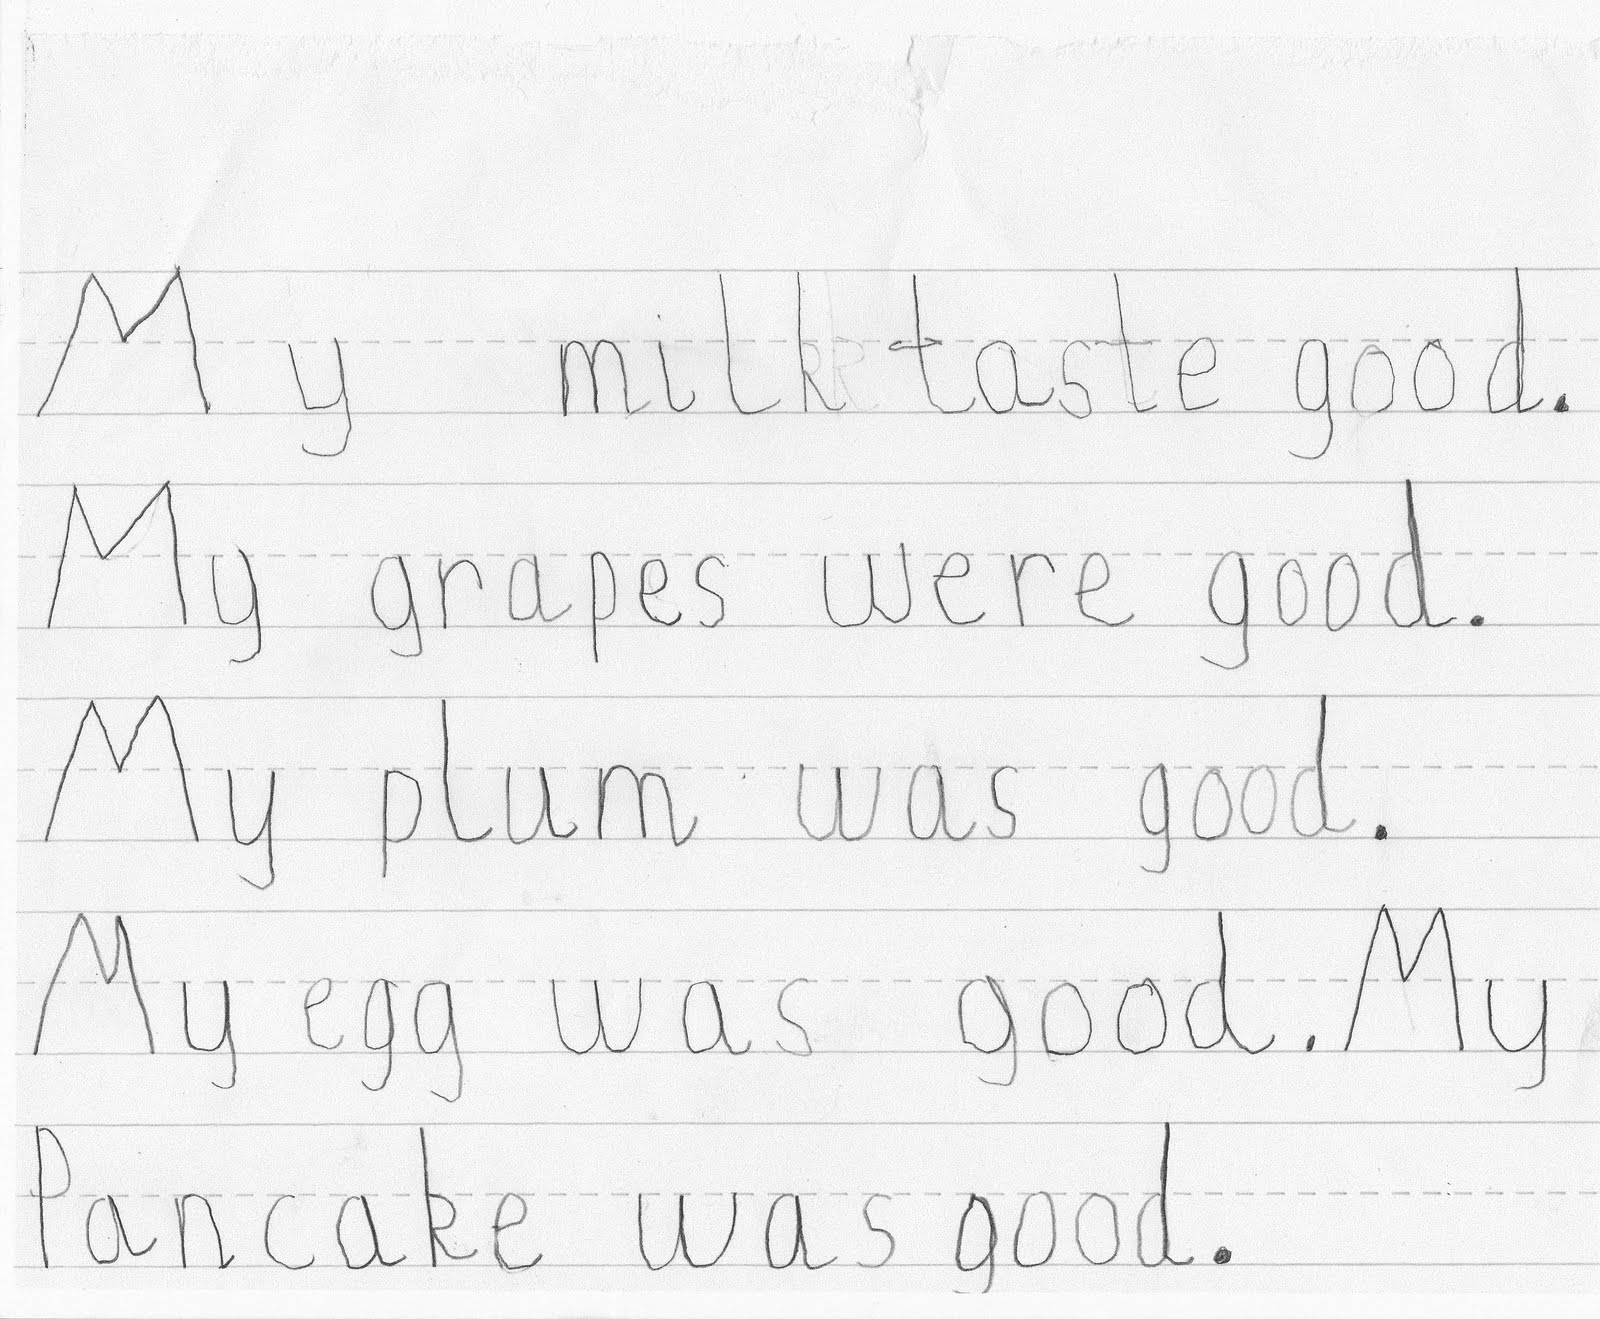 My milk taste good.
My grapes were good.
My plum was good.
My egg was good. My
Pancake was good.